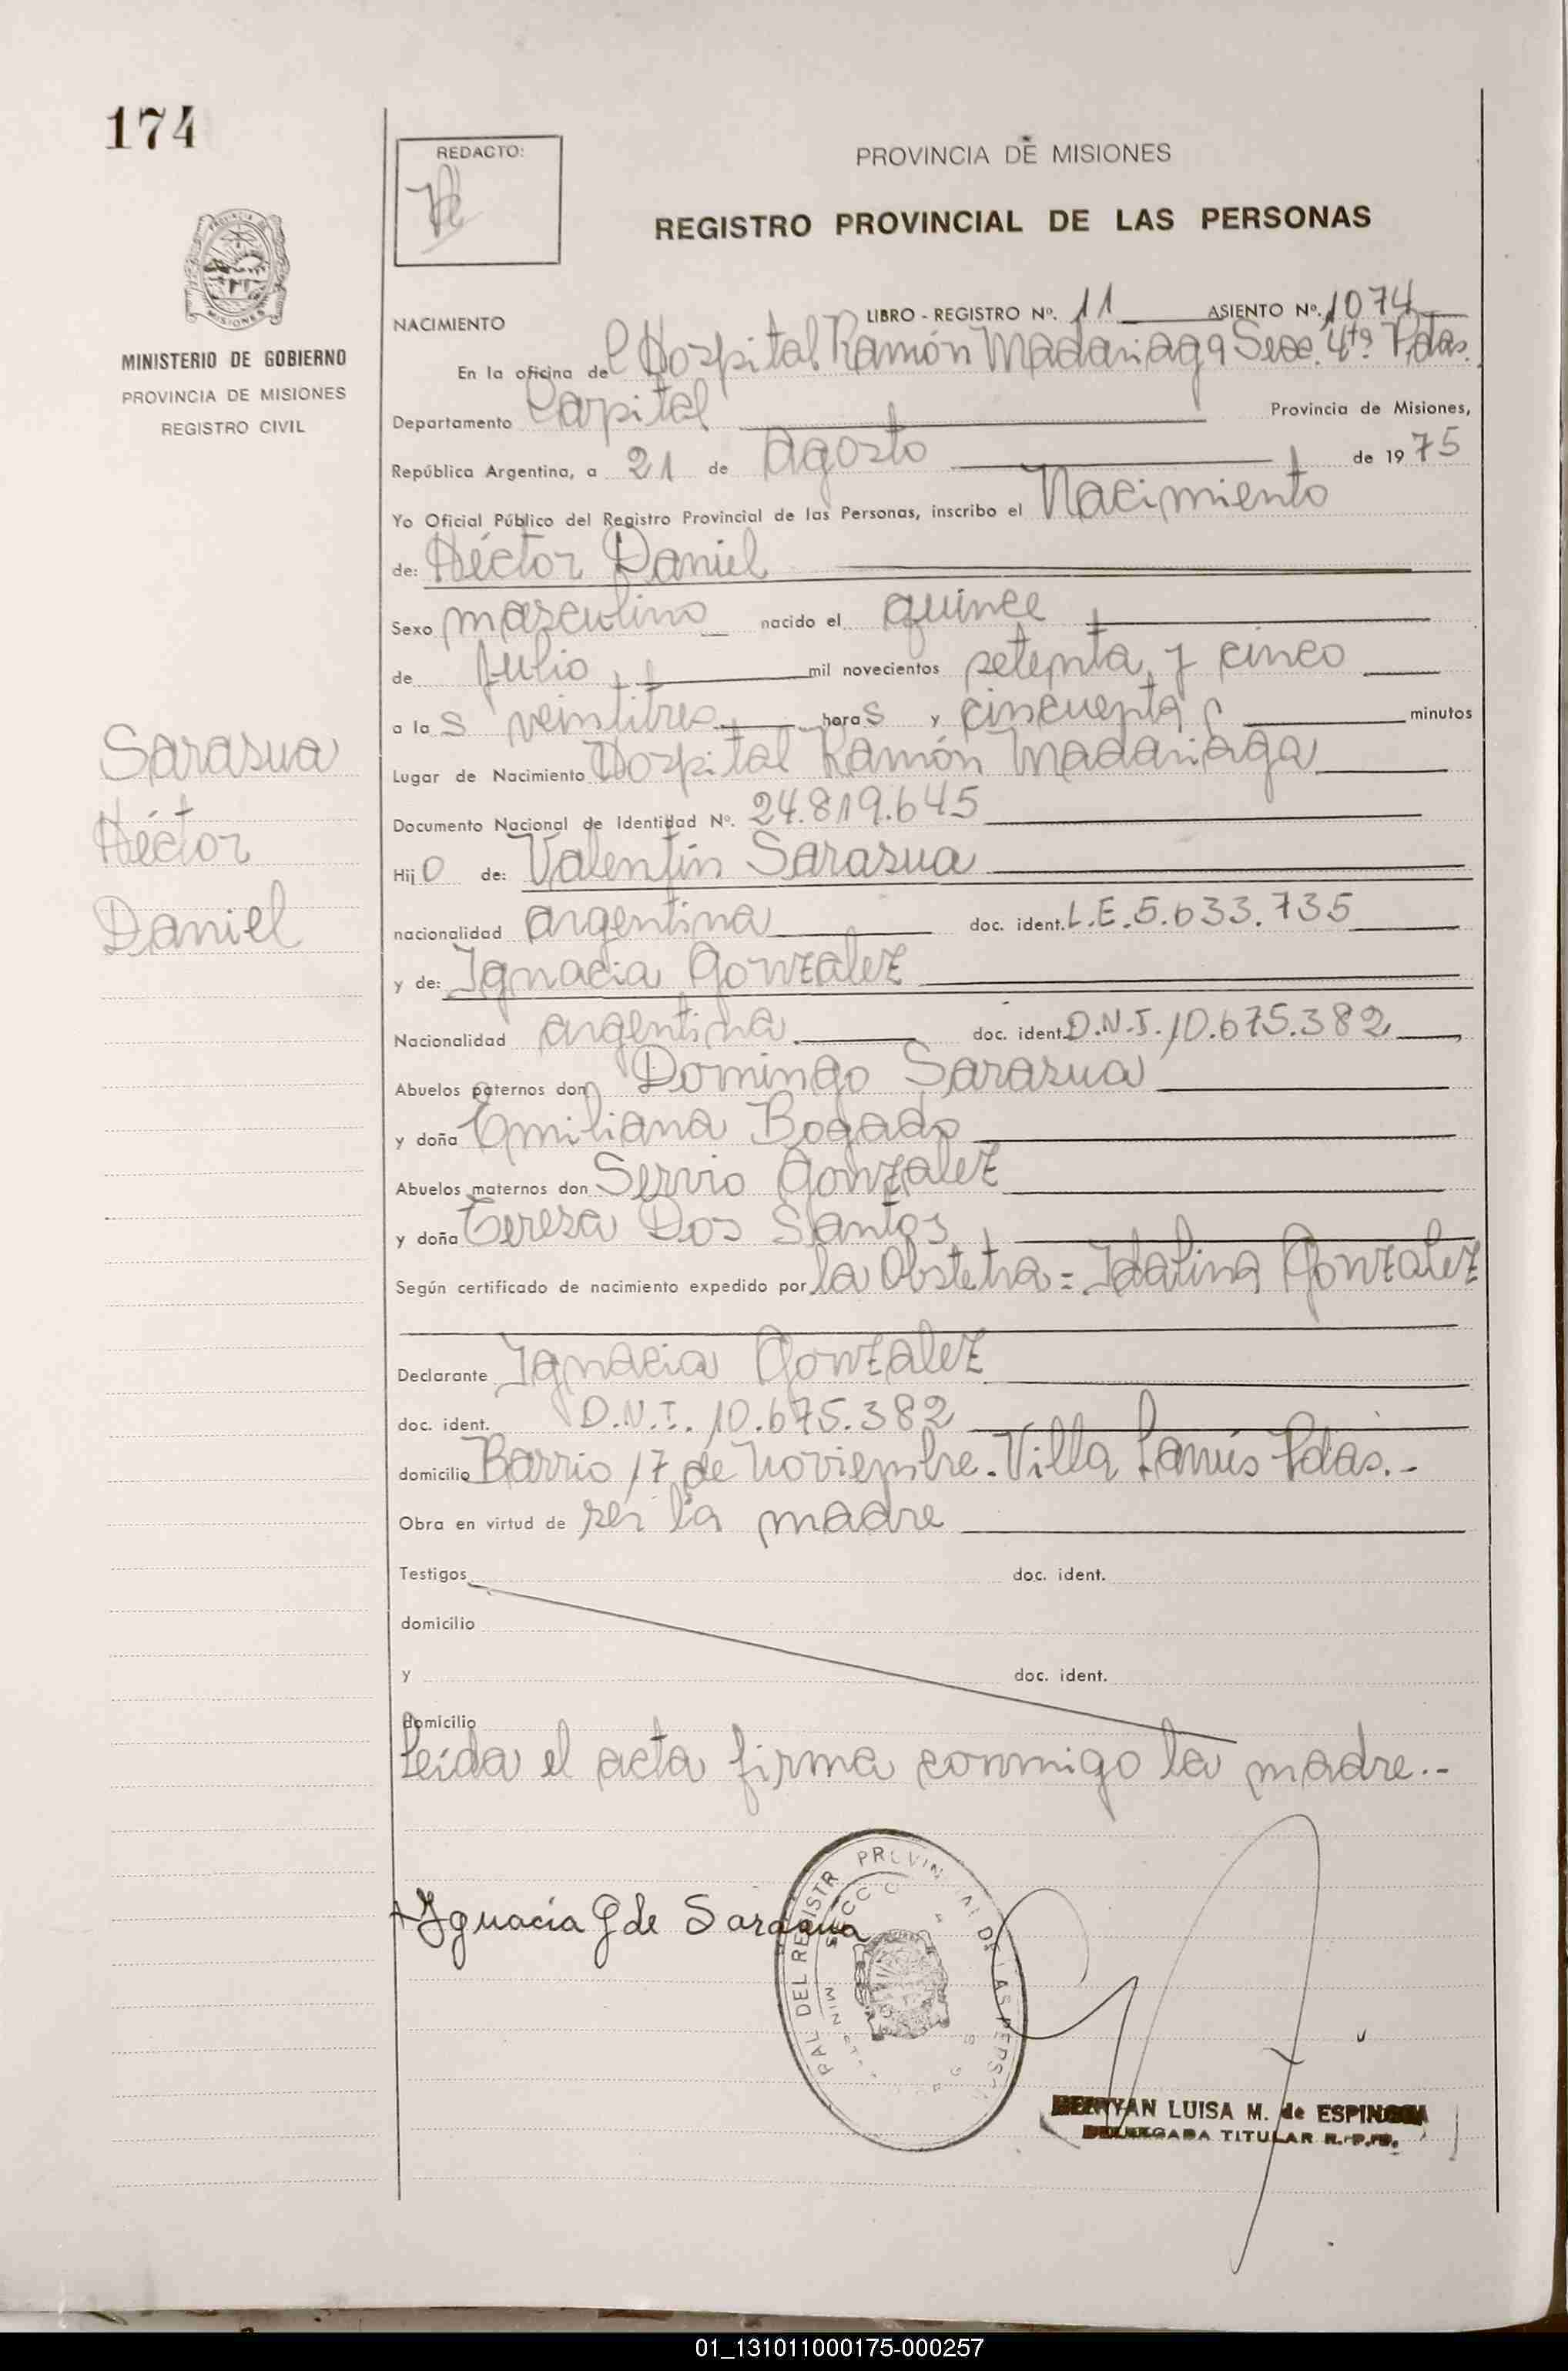 174
REDACTO:
PROVINCIA DE MISIONES
REGISTRO PROVINCIAL DE LAS PERSONAS
MISIONES
MINISTERIO DE GOBIERNO
PROVINCIA DE MISIONES
REGISTRO CIVIL
NACIMIENTO LIBRO - REGISTRO Nº. 11 ASIENTO Nº. 1074
En la oficina del Hospital Ramón Madariaga Secc. 4ta Pdas.
Departamento Capital Provincia de Misiones,
República Argentina, a 21 de Agosto de 1975
Yo Oficial Público del Registro Provincial de las Personas, inscribo el Nacimiento
de: Héctor Daniel
Sexo masculino nacido el quince
de Julio mil novecientos setenta y cinco
a las veintitres horas y cincuenta minutos
Lugar de Nacimiento Hospital Ramón Madariaga
Documento Nacional de Identidad Nº. 24.819.645
Hijo de: Valentín Sarasua
nacionalidad argentina doc. ident. L.E. 5.633.735
y de: Ignacia Gonzalez
Nacionalidad argentina doc. ident. D.N.I. 10.675.382
Abuelos paternos don Domingo Sarasua
y doña Emiliana Bogado
Abuelos maternos don Servio Gonzalez
y doña Teresa Dos Santos
Según certificado de nacimiento expedido por la Obstetra = Idalina Gonzalez
Declarante Ignacia Gonzalez
doc. ident. D.N.I. 10.675.382
domicilio Barrio 17 de Noviembre - Villa Lanús Pdas. -
Obra en virtud de ser la madre
Testigos doc. ident.
domicilio
y doc. ident.
domicilio
Leída el acta firma conmigo la madre.-
Sarasua
Héctor
Daniel
Ignacia G de Sarasua
LUISA M. de
TITULAR
01_131011000175-000257